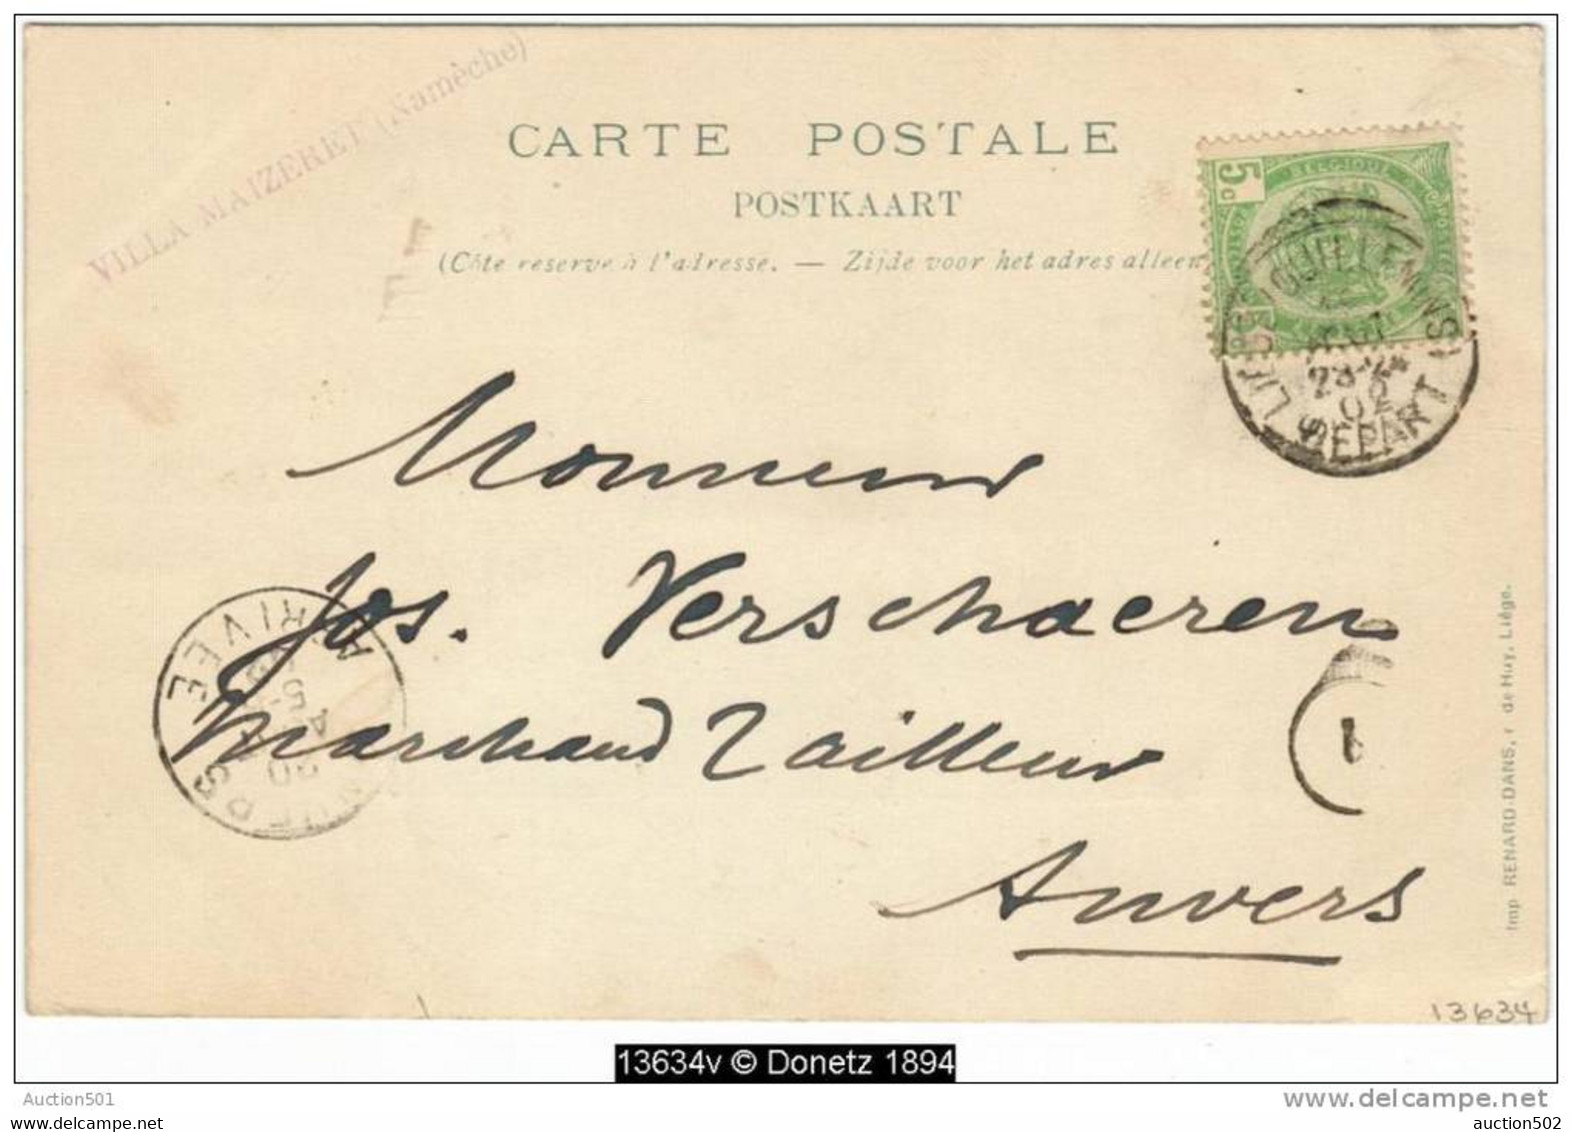 VILLA MAIZERET (Namèche)
CARTE POSTALE
POSTKAART
(Côte reservé à l'adresse. — Zijde voor het adres alleen
BELGIQUE
5c
LIEGE (GUILLEMINS)
DEPART
Monsieur
Jos. Verschaeren
Marchand Tailleur
Anvers
ARRIVEE
ANVERS
1
Imp RENARD-DANS, r de Huy, Liége.
13634
13634v © Donetz 1894
Auction501
www.delcampe.net
auction502